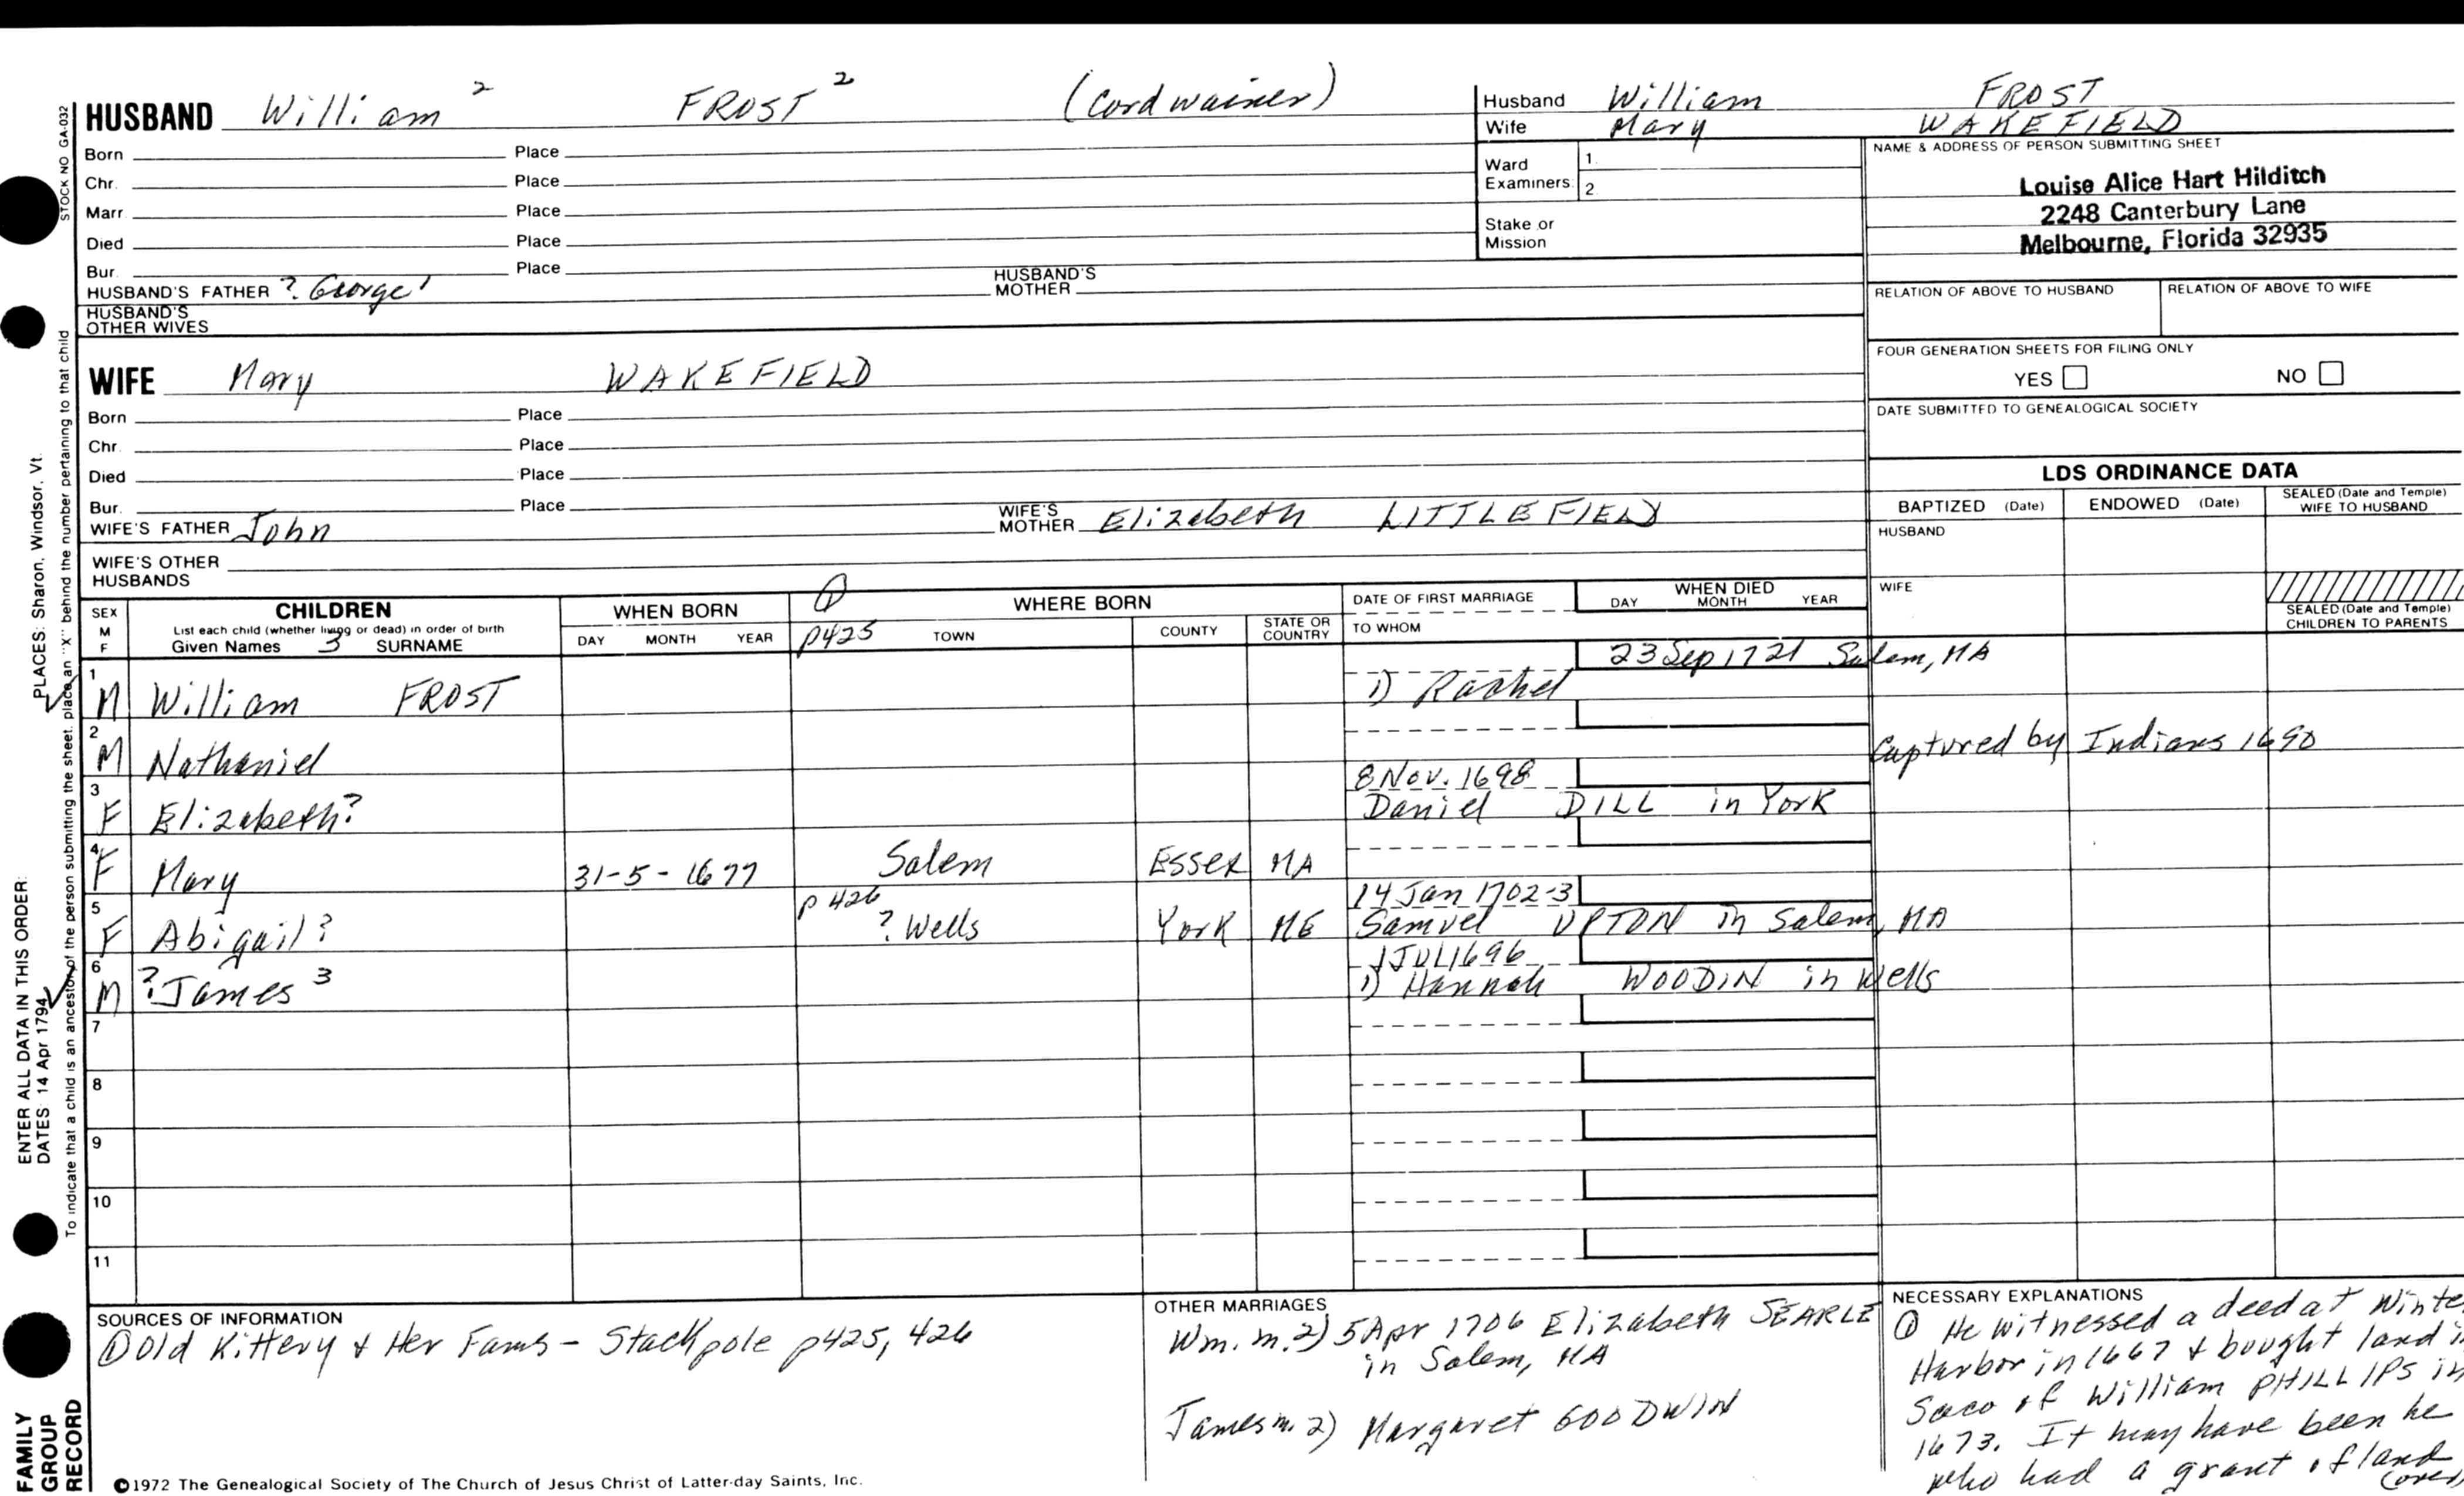 HUSBAND William ² FROST ² (Cordwainer)
Born Place
Chr. Place
Marr. Place
Died Place
Bur. Place
HUSBAND'S FATHER ? George ¹ HUSBAND'S MOTHER
HUSBAND'S OTHER WIVES
Husband William FROST
Wife Mary WAKEFIELD
Ward Examiners 1. 2.
Stake or Mission
NAME & ADDRESS OF PERSON SUBMITTING SHEET
Louise Alice Hart Hilditch
2248 Canterbury Lane
Melbourne, Florida 32935
RELATION OF ABOVE TO HUSBAND RELATION OF ABOVE TO WIFE
FOUR GENERATION SHEETS FOR FILING ONLY
YES NO
DATE SUBMITTED TO GENEALOGICAL SOCIETY
WIFE Mary WAKEFIELD
Born Place
Chr. Place
Died Place
Bur. Place
WIFE'S FATHER John WIFE'S MOTHER Elizabeth LITTLEFIELD
WIFE'S OTHER HUSBANDS
LDS ORDINANCE DATA
BAPTIZED (Date) ENDOWED (Date) SEALED (Date and Temple) WIFE TO HUSBAND
HUSBAND
WIFE
SEALED (Date and Temple) CHILDREN TO PARENTS
SEX M F
CHILDREN
List each child (whether living or dead) in order of birth
Given Names 3 SURNAME
WHEN BORN
DAY MONTH YEAR
① p425
WHERE BORN
TOWN COUNTY STATE OR COUNTRY
DATE OF FIRST MARRIAGE
TO WHOM
WHEN DIED
DAY MONTH YEAR
1 M William FROST 1) Rachel 23 Sep 1721 Salem, MA
2 M Nathaniel Captured by Indians 1690
3 F Elizabeth? 8 Nov. 1698 Daniel DILL in York
4 F Mary 31-5-1677 Salem Essex MA
5 F Abigail? p 426 ? Wells York ME 14 Jan 1702-3 Samuel UPTON in Salem, MA
6 M ? James ³ 1 JUL 1696 1) Hannah WOODIN in Wells
7
8
9
10
11
SOURCES OF INFORMATION
① Old Kittery & Her Fams - Stackpole p425, 426
OTHER MARRIAGES
Wm. m. 2) 5 Apr 1706 Elizabeth SEARLE
in Salem, MA
James m. 2) Margaret GOODWIN
NECESSARY EXPLANATIONS
① He witnessed a deed at Winte
Harbor in 1667 & bought land i
Saco of William PHILLIPS in
1673. It may have been he
who had a grant of land
(over)
©1972 The Genealogical Society of The Church of Jesus Christ of Latter-day Saints, Inc.
STOCK NO GA-032
PLACES: Sharon, Windsor, Vt.
ENTER ALL DATA IN THIS ORDER:
DATES: 14 Apr 1794
To indicate that a child is an ancestor of the person submitting the sheet, place an "X" behind the number pertaining to that child
FAMILY
GROUP
RECORD